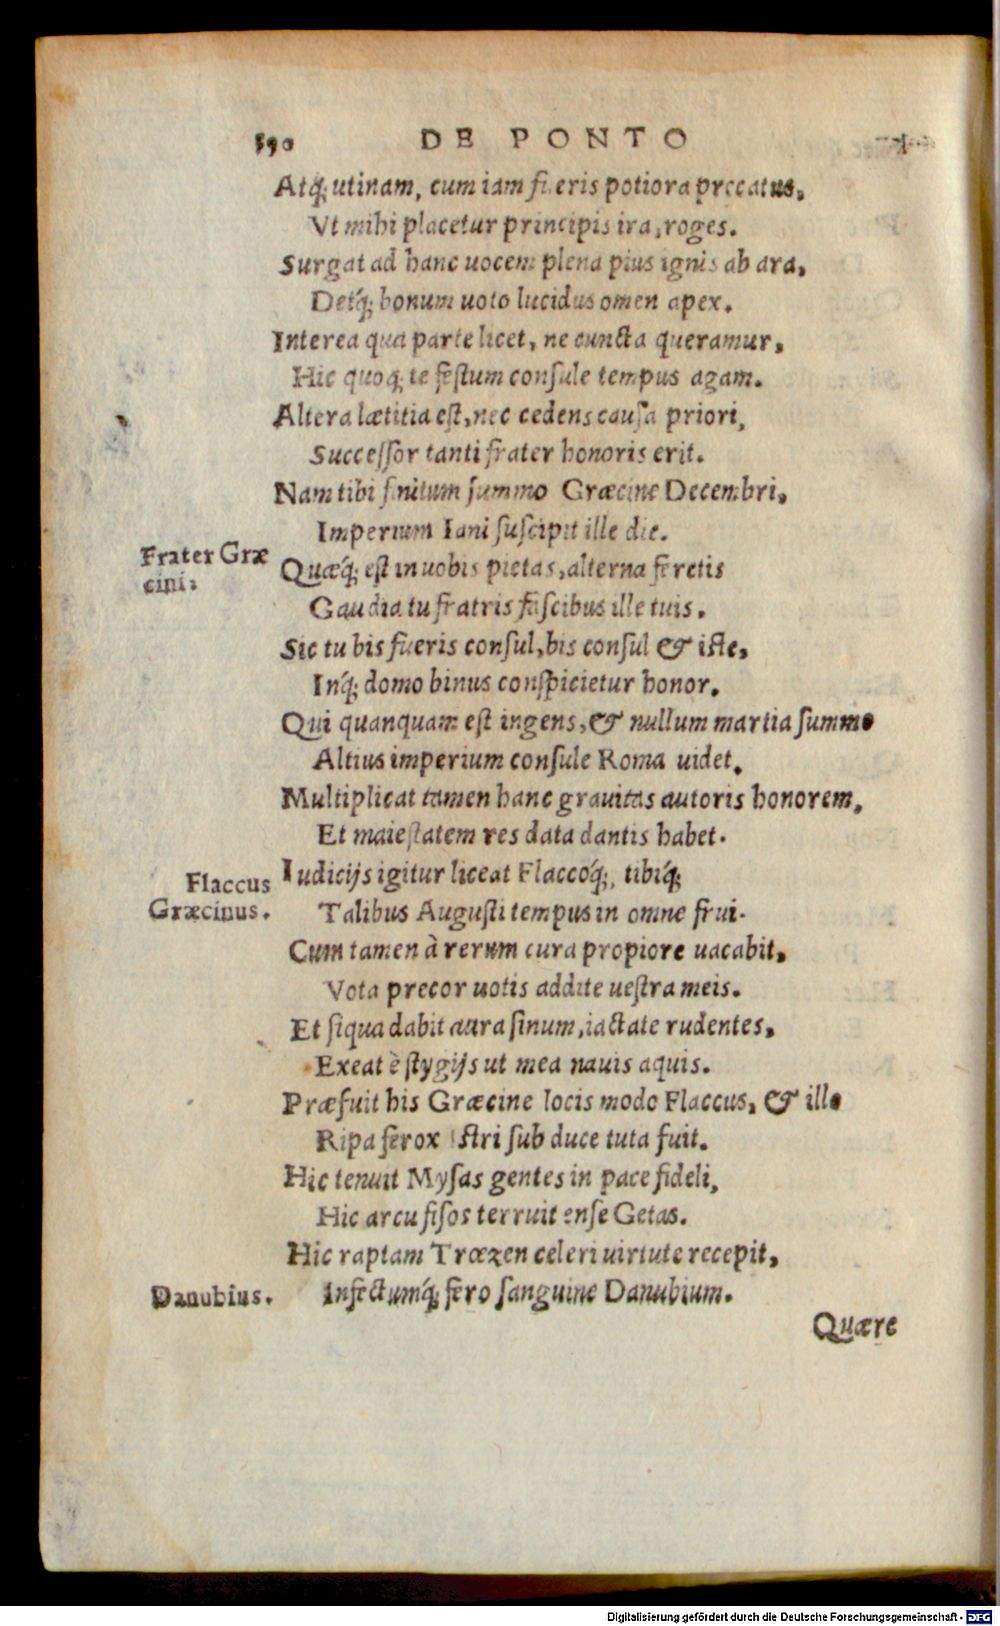 590 DE PONTO
Atq́; utinam, cum iam fueris potiora precatus,
Vt mihi placetur principis ira, roges.
Surgat ad hanc uocem plena pius ignis ab ara,
Detq́; bonum uoto lucidus omen apex.
Interea qua parte licet, ne cuncta queramur,
Hic quoq; te festum consule tempus agam.
Altera lætitia est, nec cedens causa priori,
Successor tanti frater honoris erit.
Nam tibi finitum summo Græcine Decembri,
Imperium Iani suscipit ille die.
Frater Græ
cini.
Quæq́; est in uobis pietas, alterna feretis
Gaudia tu fratris fascibus ille tuis.
Sic tu bis fueris consul, bis consul & iste,
Inq́; domo binus conspicietur honor.
Qui quanquam est ingens, & nullum martia summo
Altius imperium consule Roma uidet.
Multiplicat tamen hanc grauitas autoris honorem,
Et maiestatem res data dantis habet.
Flaccus
Græcinus.
Iudicijs igitur liceat Flaccoq́;, tibiq́;
Talibus Augusti tempus in omne frui.
Cum tamen à rerum cura propiore uacabit,
Vota precor uotis addite uestra meis.
Et siqua dabit aura sinum, iactate rudentes,
Exeat è stygijs ut mea nauis aquis.
Præfuit his Græcine locis modo Flaccus, & illo
Ripa ferox Istri sub duce tuta fuit.
Hic tenuit Mysas gentes in pace fideli,
Hic arcu fisos terruit ense Getas.
Hic raptam Trœzen celeri uirtute recepit,
Danubius.
Infectumq́; fero sanguine Danubium.
Quære
Digitalisierung gefördert durch die Deutsche Forschungsgemeinschaft - DFG